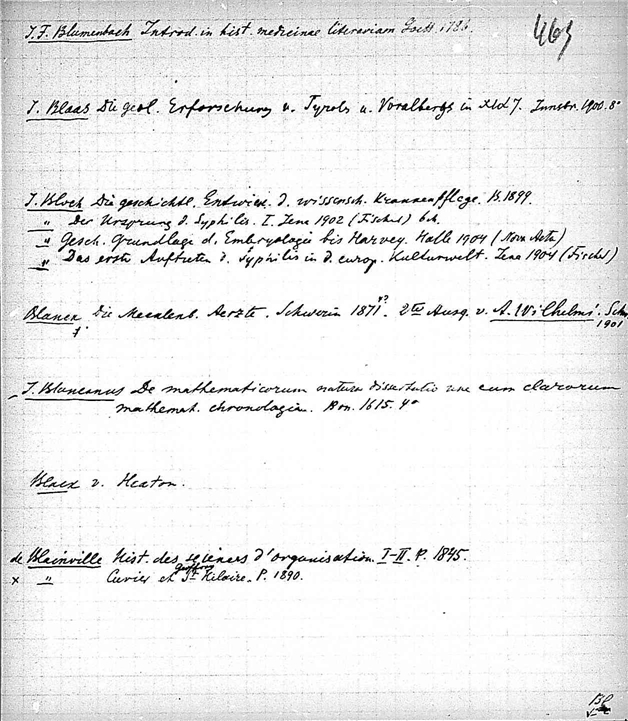 463
J. F. Blumenbach Introd. in hist. medicinae literariam Goett. 1786.
J. Blaas Die geol. Erforschung v. Tyrols u. Voralbergs in XIX J. Innsbr. 1900. 8°
J. Bloch Die geschichtl. Entwick. d. wissensch. Krankenpflege. B. 1899.
" Der Ursprung d. Syphilis. I. Jena 1902 (Fischer)
" Gesch. Grundlage d. Embryologie bis Harvey. Halle 1904 (Nova Acta)
" Das erste Auftreten d. Syphilis in d. europ. Kulturwelt. Jena 1904 (Fischer)
Blanck Die Mecklenb. Aerzte. Schwerin 1871. 2te Ausg. v. A. Wilhelmi. Schw.
1901
J. Blancanus De mathematicorum natura dissertatio una cum clarorum
mathemat. chronologia. Bon. 1615. 4°
Black v. Heaton.
de Blainville Hist. des sciences d'organisation. I-II. P. 1845.
x " Cuvier et Geoffroy St Hilaire. P. 1890.
Bl